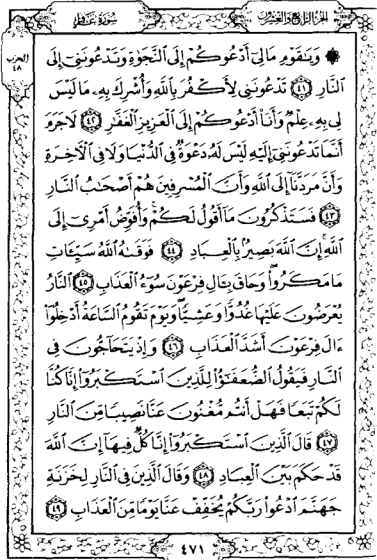 الجزء الرابع والعشرون
سورة غافر
الحزب
٤٨
۞ وَيَٰقَوْمِ مَا لِىٓ أَدْعُوكُمْ إِلَى ٱلنَّجَوٰةِ وَتَدْعُونَنِىٓ إِلَى
ٱلنَّارِ ٤١ تَدْعُونَنِى لِأَكْفُرَ بِٱللَّهِ وَأُشْرِكَ بِهِۦ مَا لَيْسَ
لِى بِهِۦ عِلْمٌ وَأَنَا۠ أَدْعُوكُمْ إِلَى ٱلْعَزِيزِ ٱلْغَفَّٰرِ ٤٢ لَا جَرَمَ
أَنَّمَا تَدْعُونَنِىٓ إِلَيْهِ لَيْسَ لَهُۥ دَعْوَةٌ فِى ٱلدُّنْيَا وَلَا فِى ٱلْءَاخِرَةِ
وَأَنَّ مَرَدَّنَآ إِلَى ٱللَّهِ وَأَنَّ ٱلْمُسْرِفِينَ هُمْ أَصْحَٰبُ ٱلنَّارِ
٤٣ فَسَتَذْكُرُونَ مَآ أَقُولُ لَكُمْ وَأُفَوِّضُ أَمْرِىٓ إِلَى
ٱللَّهِ إِنَّ ٱللَّهَ بَصِيرٌۢ بِٱلْعِبَادِ ٤٤ فَوَقَىٰهُ ٱللَّهُ سَيِّـَٔاتِ
مَا مَكَرُوا۟ وَحَاقَ بِـَٔالِ فِرْعَوْنَ سُوٓءُ ٱلْعَذَابِ ٤٥ ٱلنَّارُ
يُعْرَضُونَ عَلَيْهَا غُدُوًّا وَعَشِيًّا وَيَوْمَ تَقُومُ ٱلسَّاعَةُ أَدْخِلُوٓا۟
ءَالَ فِرْعَوْنَ أَشَدَّ ٱلْعَذَابِ ٤٦ وَإِذْ يَتَحَآجُّونَ فِى
ٱلنَّارِ فَيَقُولُ ٱلضُّعَفَٰٓؤُا۟ لِلَّذِينَ ٱسْتَكْبَرُوٓا۟ إِنَّا كُنَّا
لَكُمْ تَبَعًا فَهَلْ أَنتُم مُّغْنُونَ عَنَّا نَصِيبًا مِّنَ ٱلنَّارِ
٤٧ قَالَ ٱلَّذِينَ ٱسْتَكْبَرُوٓا۟ إِنَّا كُلٌّ فِيهَآ إِنَّ ٱللَّهَ
قَدْ حَكَمَ بَيْنَ ٱلْعِبَادِ ٤٨ وَقَالَ ٱلَّذِينَ فِى ٱلنَّارِ لِخَزَنَةِ
جَهَنَّمَ ٱدْعُوا۟ رَبَّكُمْ يُخَفِّفْ عَنَّا يَوْمًا مِّنَ ٱلْعَذَابِ ٤٩
٤٧١